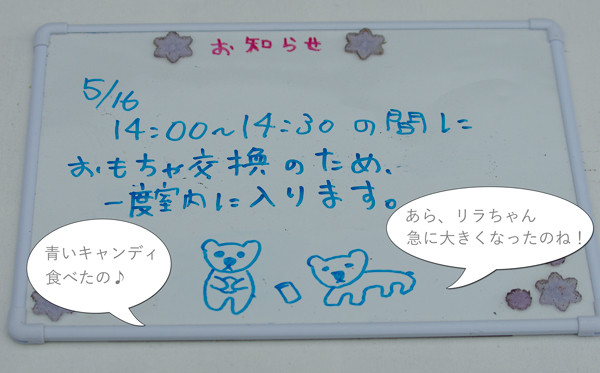 お知らせ
5/16
14:00~14:30 の間に
おもちゃ交換のため、
一度室内に入ります。
青いキャンディ
食べたの♪
あら、リラちゃん
急に大きくなったのね!